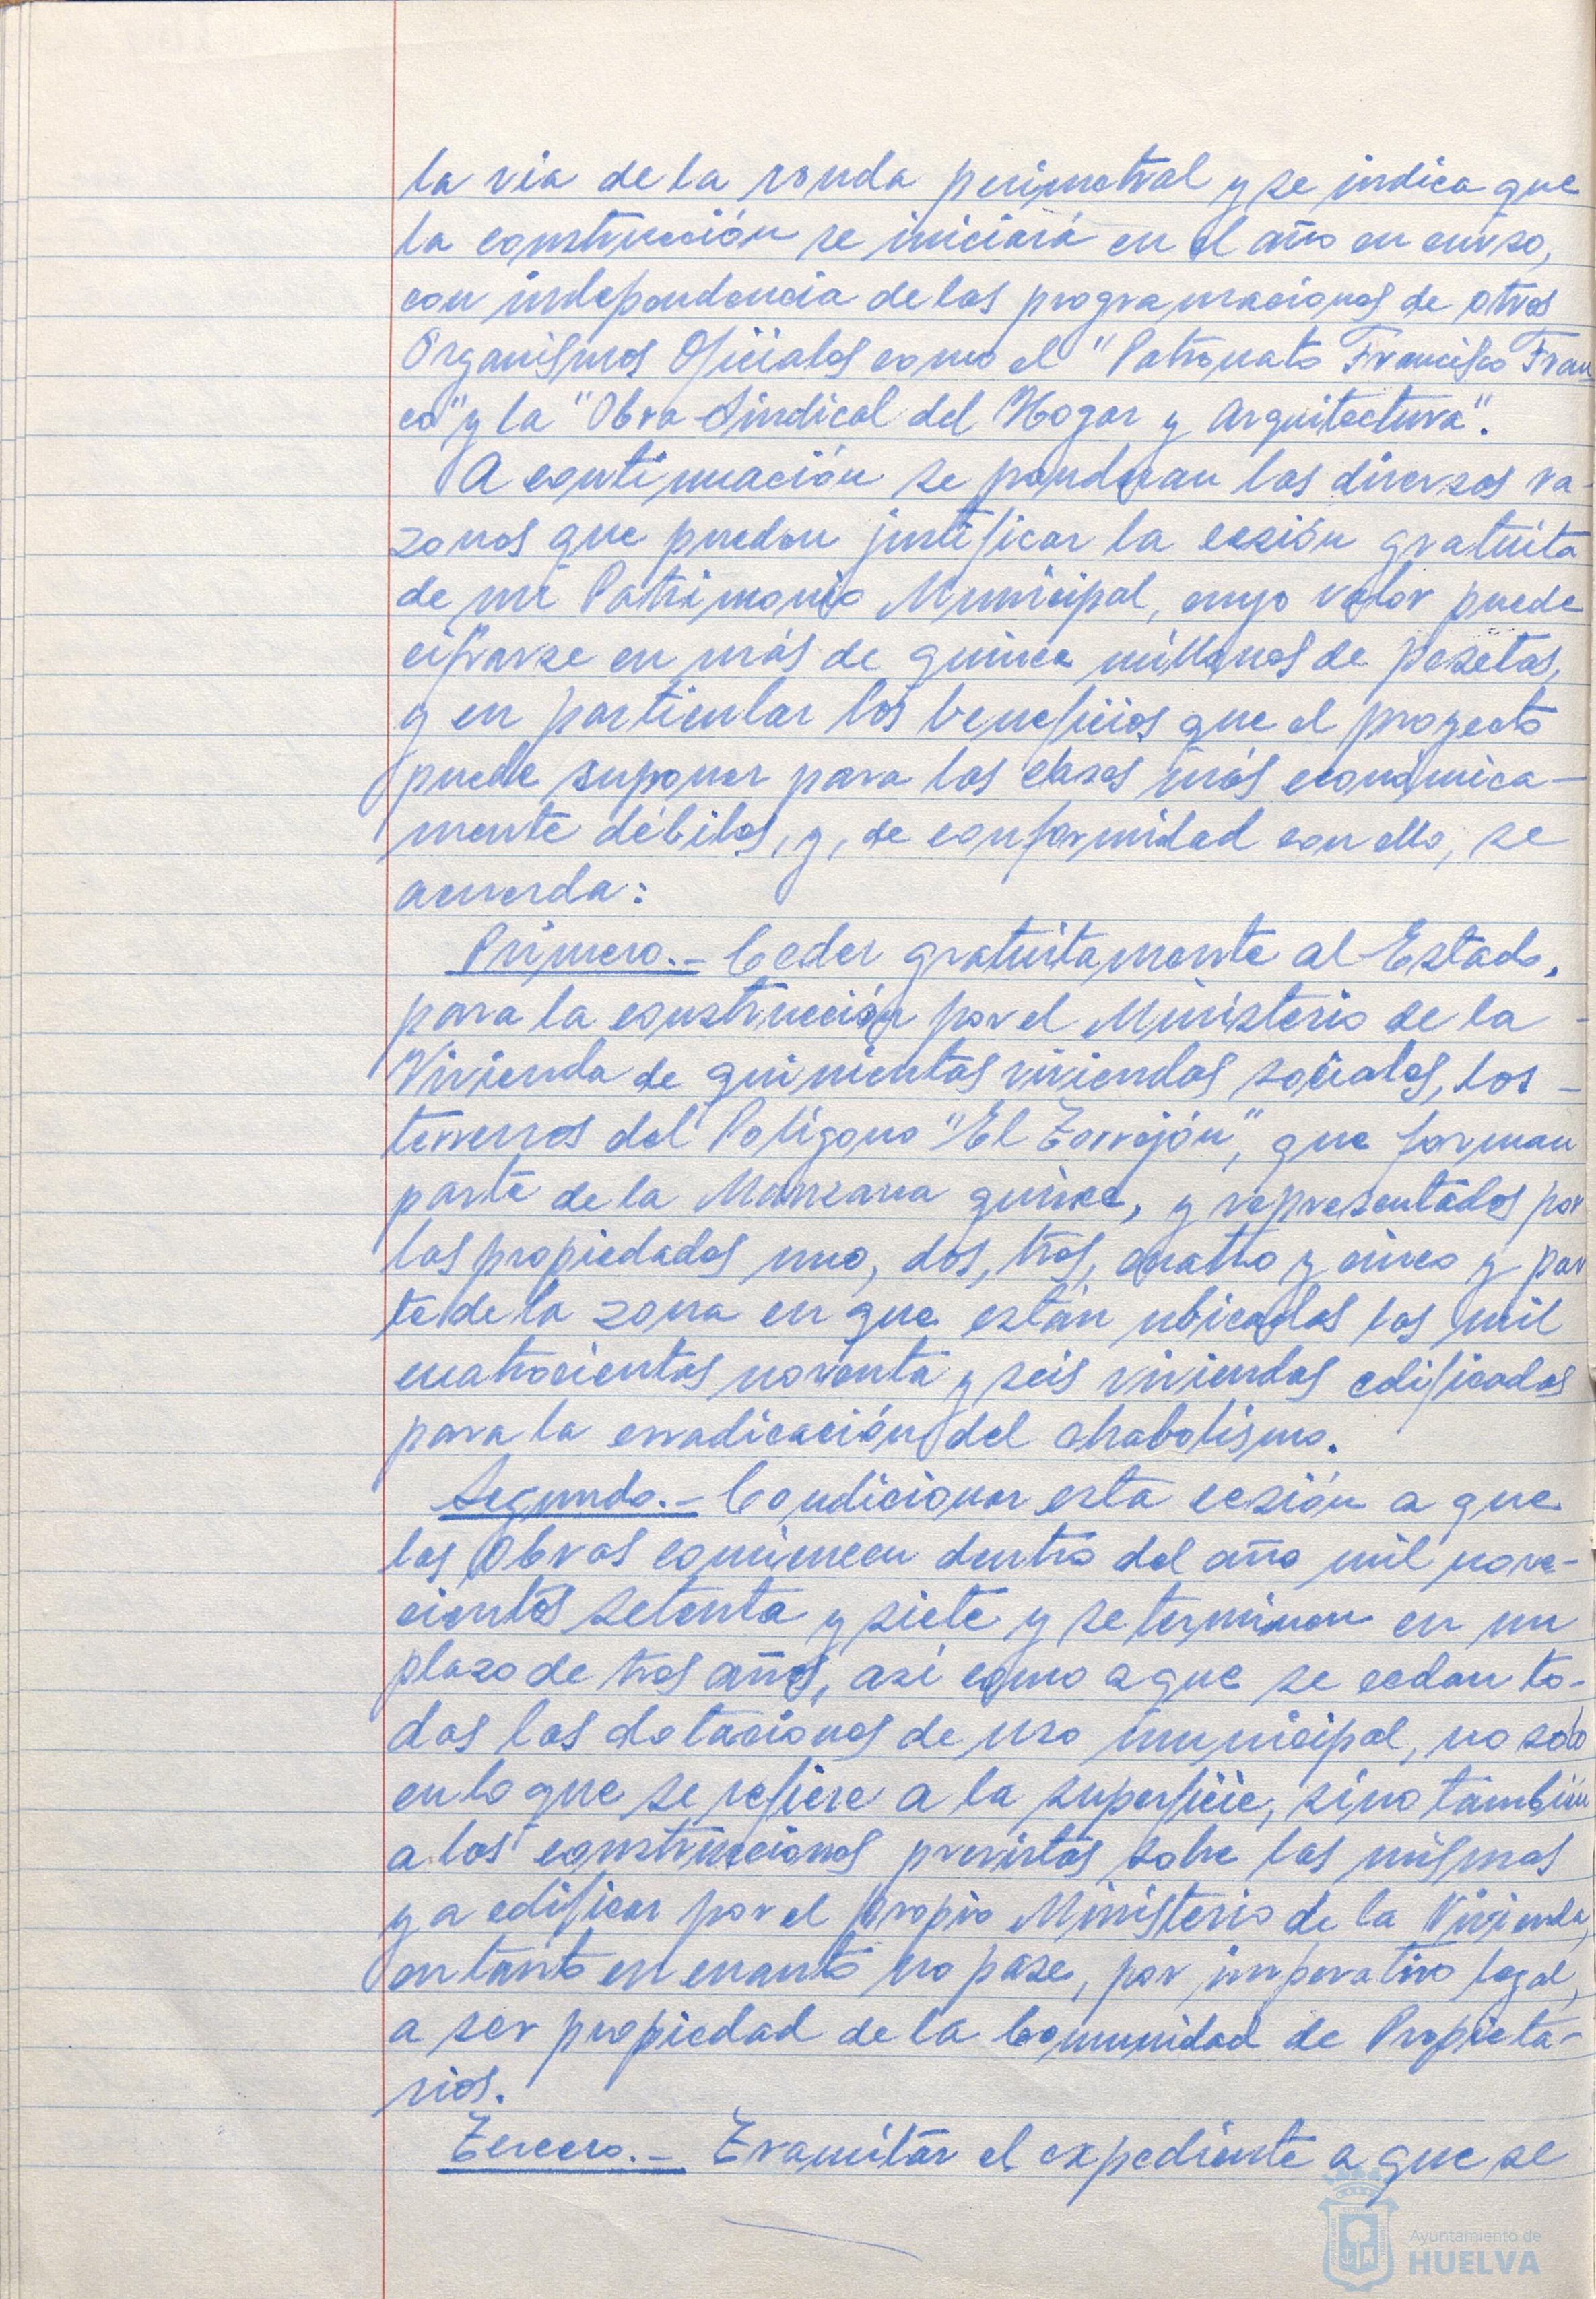 la via de la ronda perimetral y se indica que
la construcción se iniciará en el año en curso,
con independencia de las programaciones de otros
Organismos Oficiales como el "Patronato Francisco Fran
co" y la "Obra Sindical del Hogar y Arquitectura".
A continuación se ponderan las diversas ra-
zones que pueden justificar la cesión gratuita
de un Patrimonio Municipal, cuyo valor puede
cifrarse en más de quince millones de pesetas,
y en particular los beneficios que el proyecto
puede suponer para las clases más económica-
mente débiles, y, de conformidad con ello, se
acuerda:
Primero.- Ceder gratuitamente al Estado,
para la construcción por el Ministerio de la -
Vivienda de quinientas viviendas sociales, los -
terrenos del Polígono "El Torrejón", que forman
parte de la Manzana quince, y representados por
las propiedades uno, dos, tres, cuatro y cinco y par
te de la zona en que están ubicadas las mil
cuatrocientas noventa y seis viviendas edificadas
para la erradicación del chabolismo.
Segundo.- Condicionar esta cesión a que
las Obras comiencen dentro del año mil nove-
cientos setenta y siete y se terminen en un
plazo de tres años, así como a que se cedan to-
das las dotaciones de uso municipal, no solo
en lo que se refiere a la superficie, sino también
a las construcciones previstas sobre las mismas
y a edificar por el propio Ministerio de la Vivienda,
en tanto en cuanto no pase, por imperativo legal,
a ser propiedad de la Comunidad de Propieta-
rios.
Tercero.- Tramitar el expediente a que se
Ayuntamiento de
HUELVA